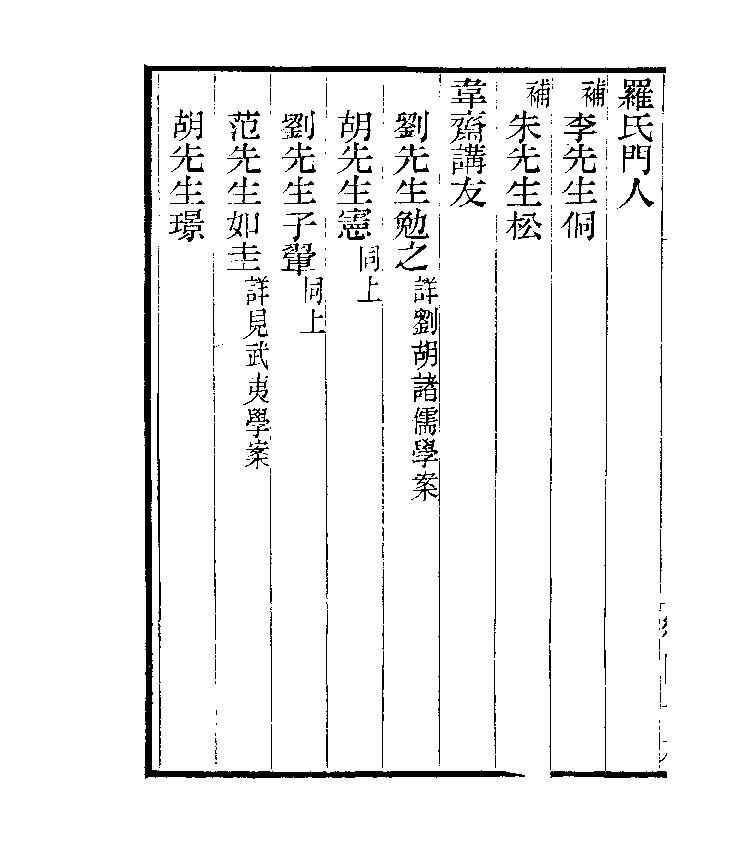 羅氏門人
補李先生侗
補朱先生松
韋齋講友
劉先生勉之詳劉胡諸儒學案
胡先生憲同上
劉先生子翬同上
范先生如圭詳見武夷學案
胡先生璟